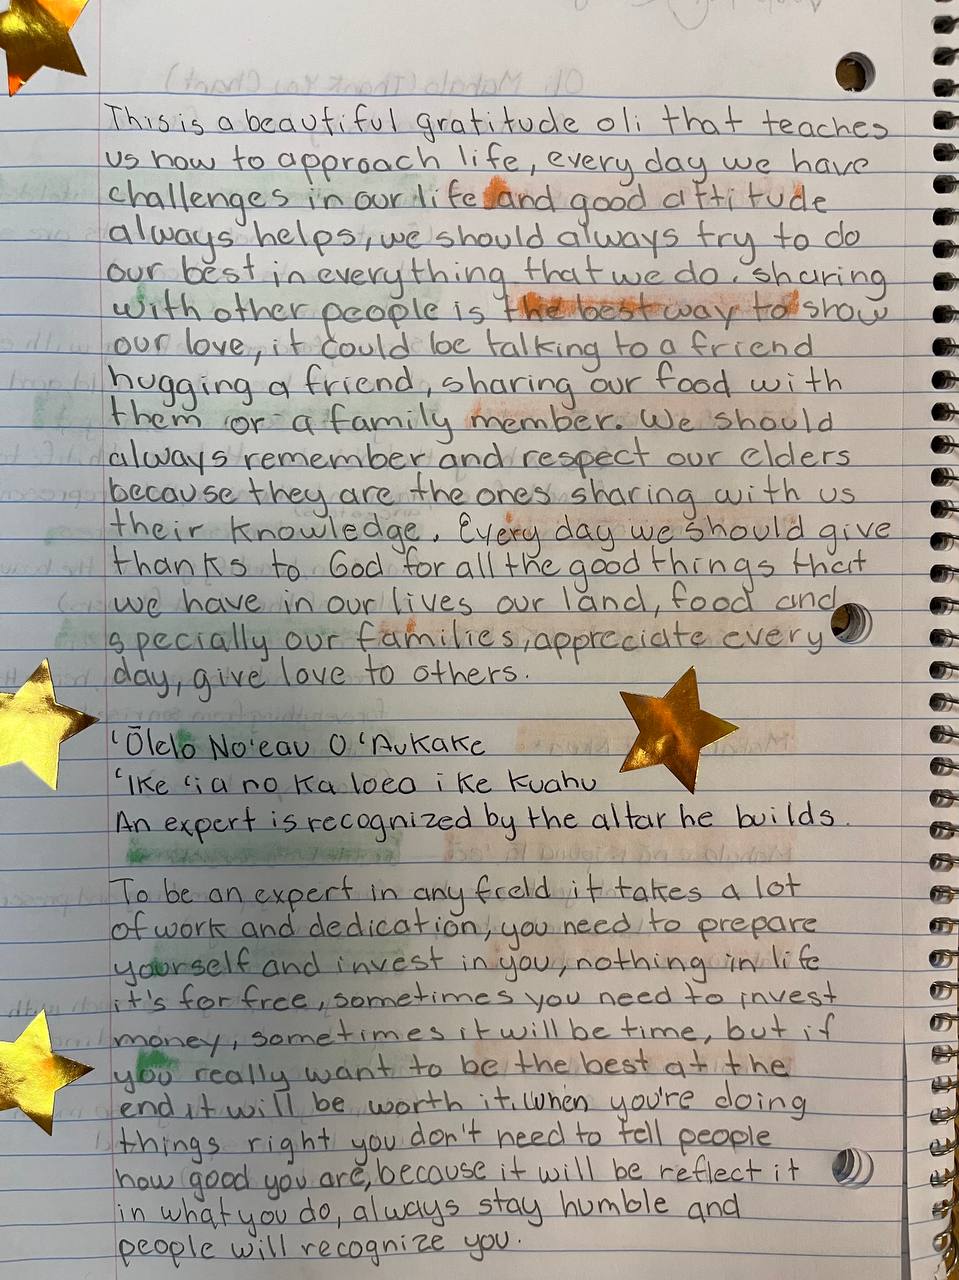 This is a beautiful gratitude oli that teaches
us how to approach life, every day we have
challenges in our life and good attitude
always helps, we should always try to do
our best in everything that we do. sharing
with other people is the best way to show
our love, it could be talking to a friend
hugging a friend, sharing our food with
them or a family member. We should
always remember and respect our elders
because they are the ones sharing with us
their knowledge. Every day we should give
thanks to God for all the good things that
we have in our lives our land, food and
specially our families, appreciate every
day, give love to others.
ʻŌlelo No'eau O ʻAukake
ʻIke ʻia no ka loea i ke kuahu
An expert is recognized by the altar he builds.
To be an expert in any field it takes a lot
of work and dedication, you need to prepare
yourself and invest in you, nothing in life
it's for free, sometimes you need to invest
money, sometimes it will be time, but if
you really want to be the best at the
end it will be worth it. When you're doing
things right you don't need to tell people
how good you are, because it will be reflect it
in what you do, always stay humble and
people will recognize you.